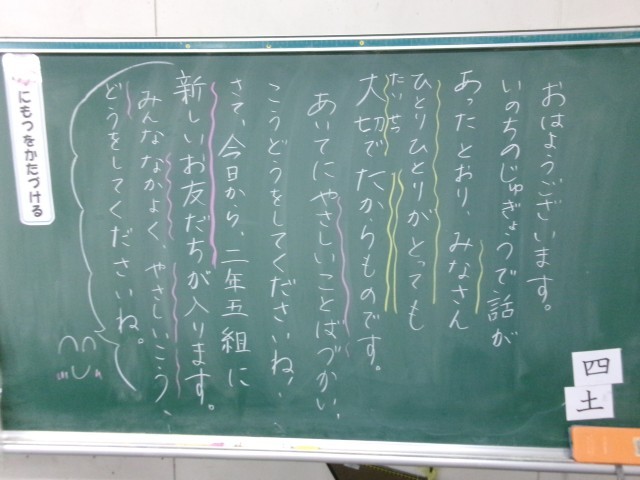 四
土
おはようございます。
いのちのじゅぎょうで話が
あったとおり、みなさん
ひとりひとりがとっても
たいせつ
大切でたからものです。
あいてにやさしいことばづかい、
こうどうをしてくださいね。
さて、今日から、二年五組に
新しいお友だちが入ります。
みんななかよく、やさしいこう
どうをしてくださいね。
にもつをかたづける